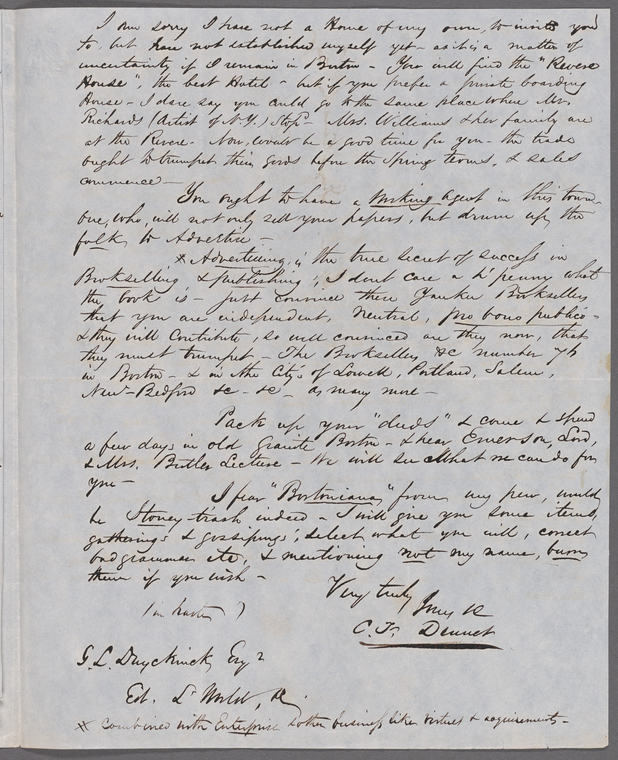 I am sorry I have not a Home of my own, to invite you
to, but have not established myself yet - as it is a matter of
uncertainty if I remain in Boston - You will find the "Revere
House", the best Hotel - but if you prefer a private boarding
House - I dare say you could go to the same place where Mr.
Richards (Artist of N.Y.) Stops - Mrs. Williams & her family are
at the Revere. Now, would be a good time for you - the trade
ought to trumpet their goods before the Spring terms, & sales
commence -
You ought to have a working agent in this town -
one, who, will not only sell your papers, but drum up, the
folk, to Advertise -
* Advertising, is the true secret of success in
Bookselling & publishing; I dont care a h'penny what
the book is - just convince these Yankee Booksellers
that you are independent, neutral, pro bono publico -
& they will Contribute, so well convinced are they now, that
they must trumpet - The Booksellers, &c number 76
in Boston - & in the City's of Lowell, Portland, Salem,
New-Bedford &c - &c - as many more -
Pack up your "duds" & come & spend
a few days in old Granite Boston - & hear Emerson, Lord,
& Mrs. Butler Lecture - We will see what we can do for
you -
I fear "Bostoniana" from my pen, would
be Stoney trash indeed - I will give you some items,
gatherings & gossipings; select what you will, correct
bad grammar etc, & mentioning not my name, burn
them if you wish -
Very truly
(in haste)
Yours &c
C. F. Dennet
G. L. Duyckinck, Esqr
Ed. Ly World, &c
* Combined with Enterprise & other business like virtues & acquirements -